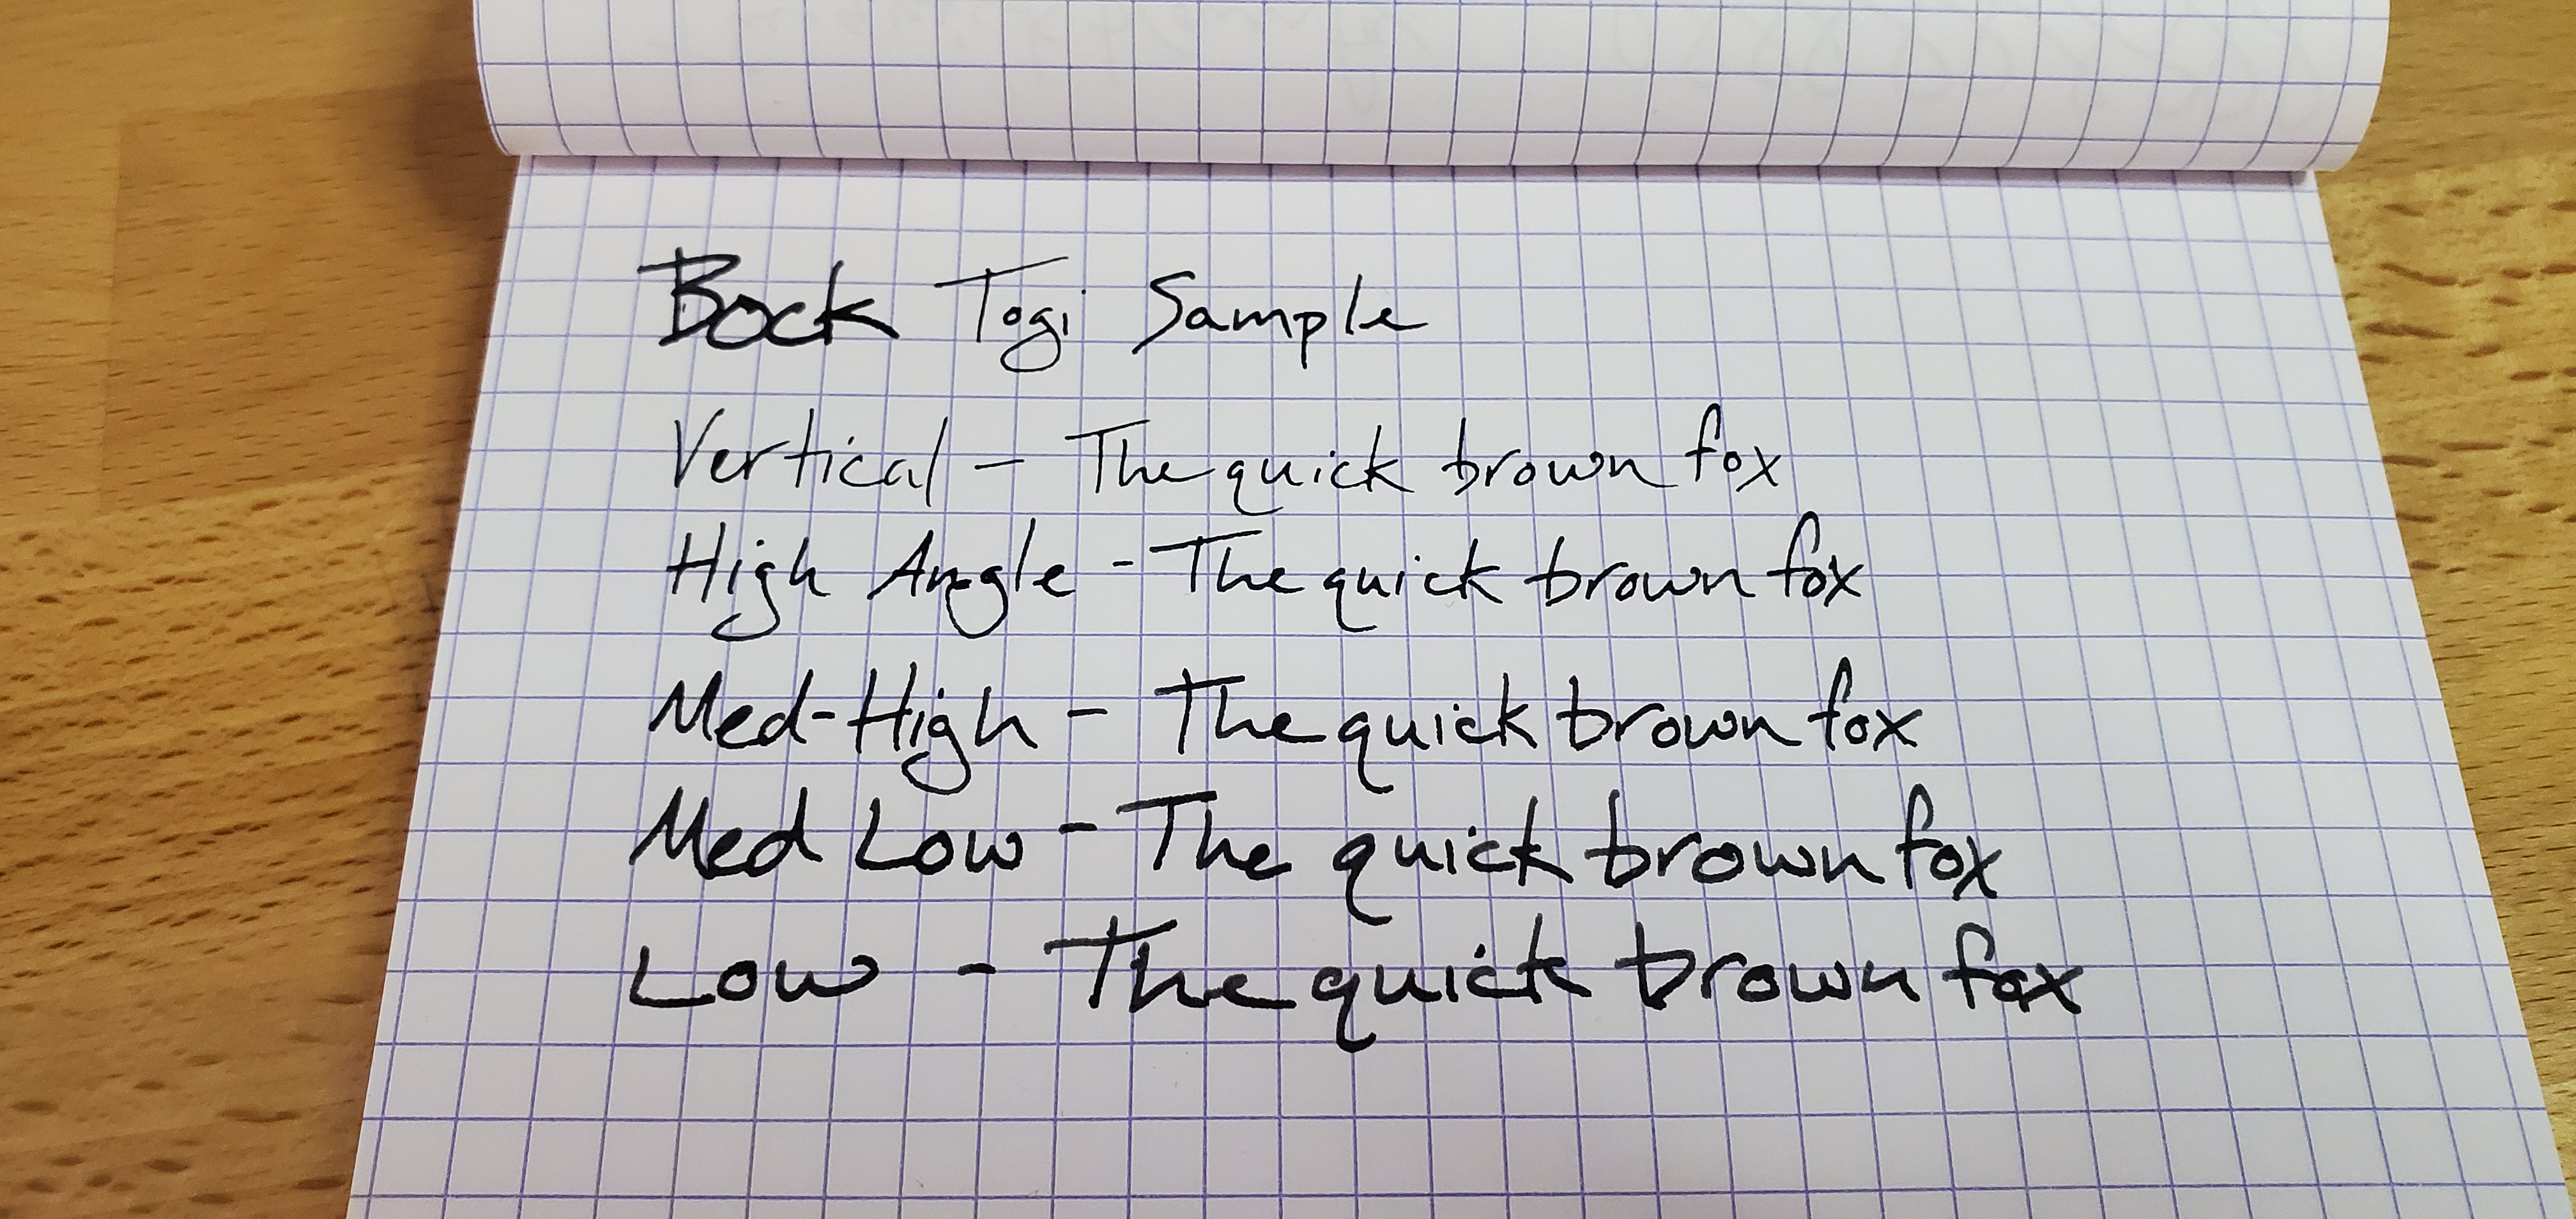 Bock Togi Sample
Vertical - The quick brown fox
High Angle - The quick brown fox
Med-High - The quick brown fox
Med Low - The quick brown fox
Low - The quick brown fox